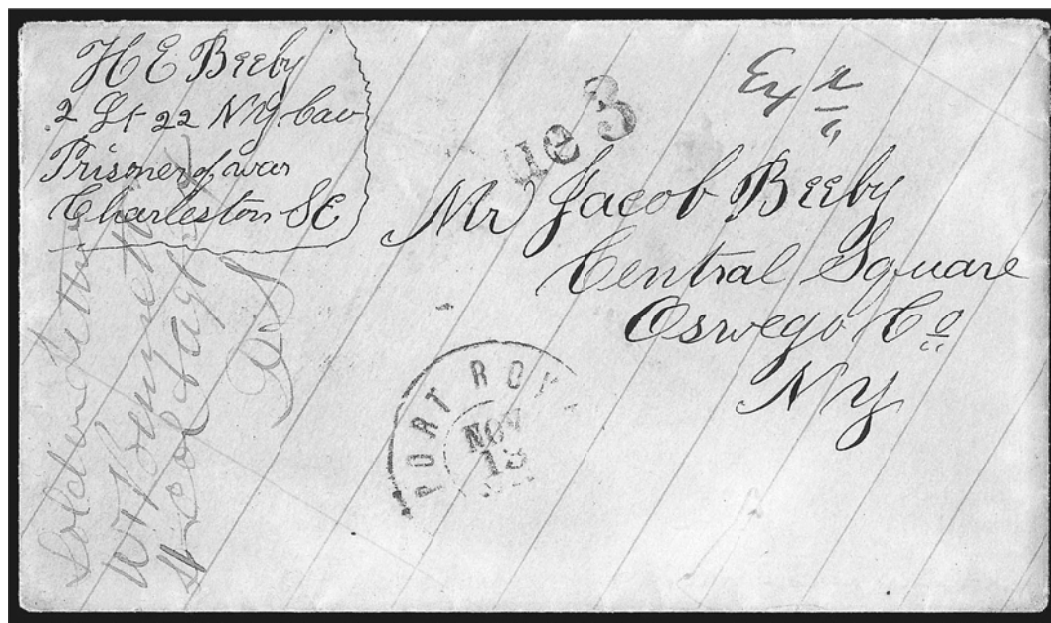 H E Beeby
2 Lt 22 NY Cav
Prisoner of war
Charleston SC
Due 3
Ex
Mr Jacob Beeby
Central Square
Oswego Co
NY
PORT ROY
NOV
13
Soldiers letter